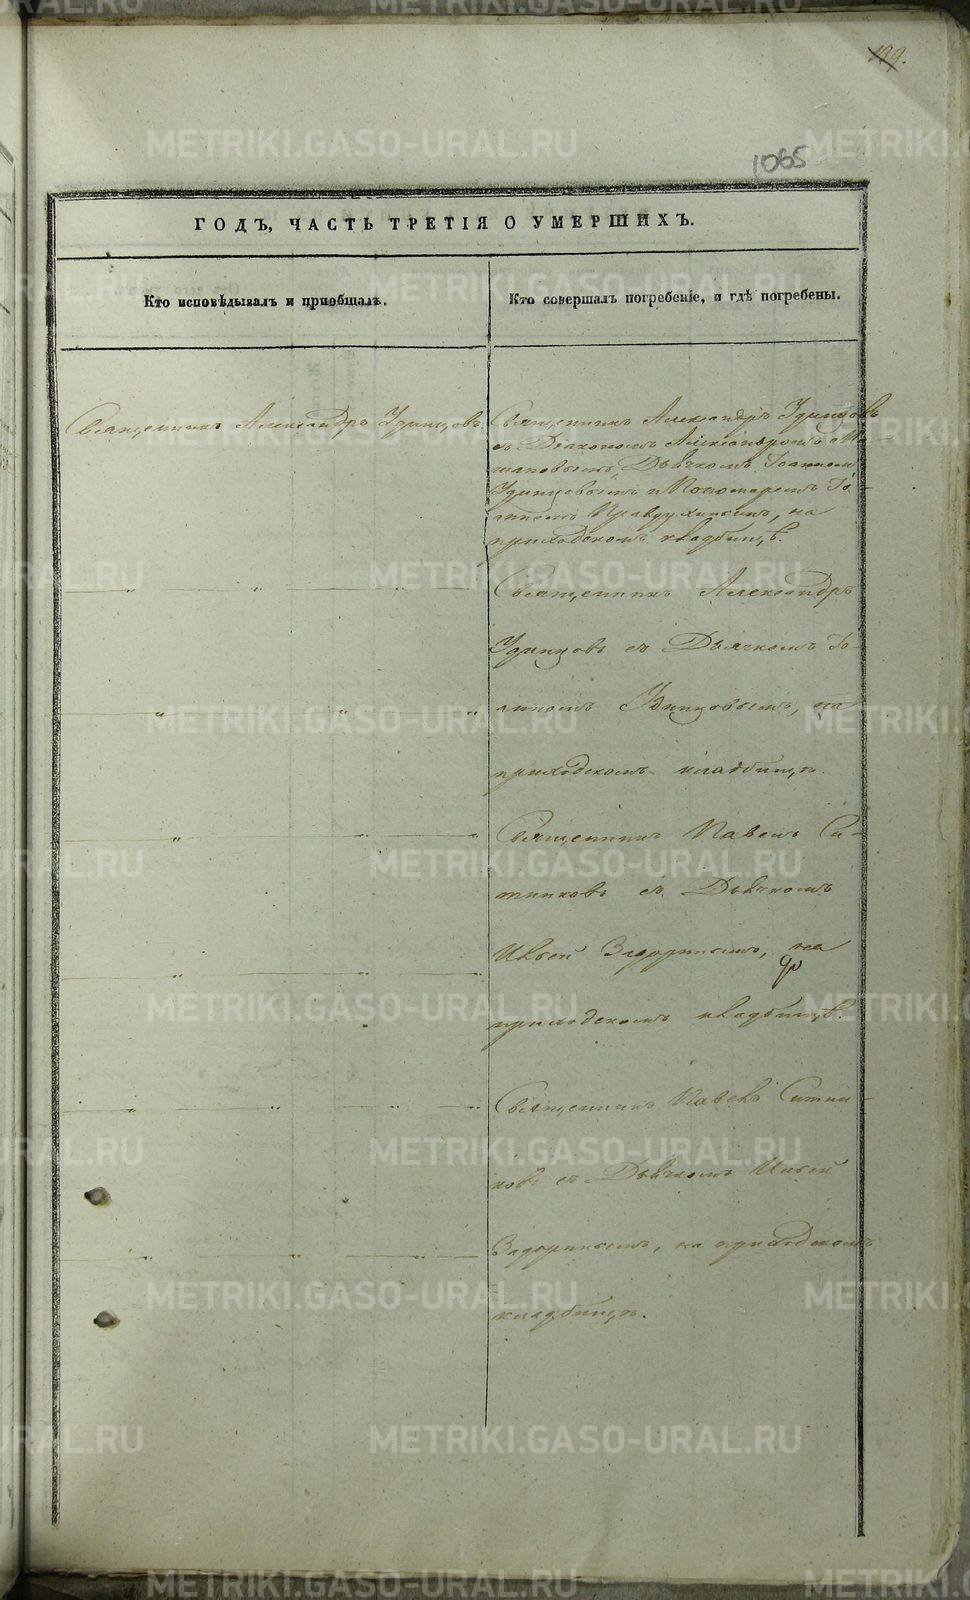 199.
1065
ГОДЪ, ЧАСТЬ ТРЕТІЯ О УМЕРШИХЪ.
Кто исповѣдывалъ и пріобщалъ.
Кто совершалъ погребеніе, и гдѣ погребены.
Священникъ Александръ Удинцовъ
Священникъ Александръ Удинцовъ
съ Діакономъ Александромъ
Дьячкомъ Іоанномъ
Удинцовымъ и Пономаремъ Іо-
анномъ на
приходскомъ кладбищѣ.
Священникъ Александръ
Удинцовъ съ Дьячкомъ Іо-
анномъ Удинцовымъ, на
приходскомъ кладбищѣ.
Священникъ Павелъ Си-
тниковъ съ Дьячкомъ
Задоринымъ, на
приходскомъ кладбищѣ.
Священникъ Павелъ Ситни-
ковъ съ Дьячкомъ
Задоринымъ, на приходскомъ
кладбищѣ.
METRIKI.GASO-URAL.RU